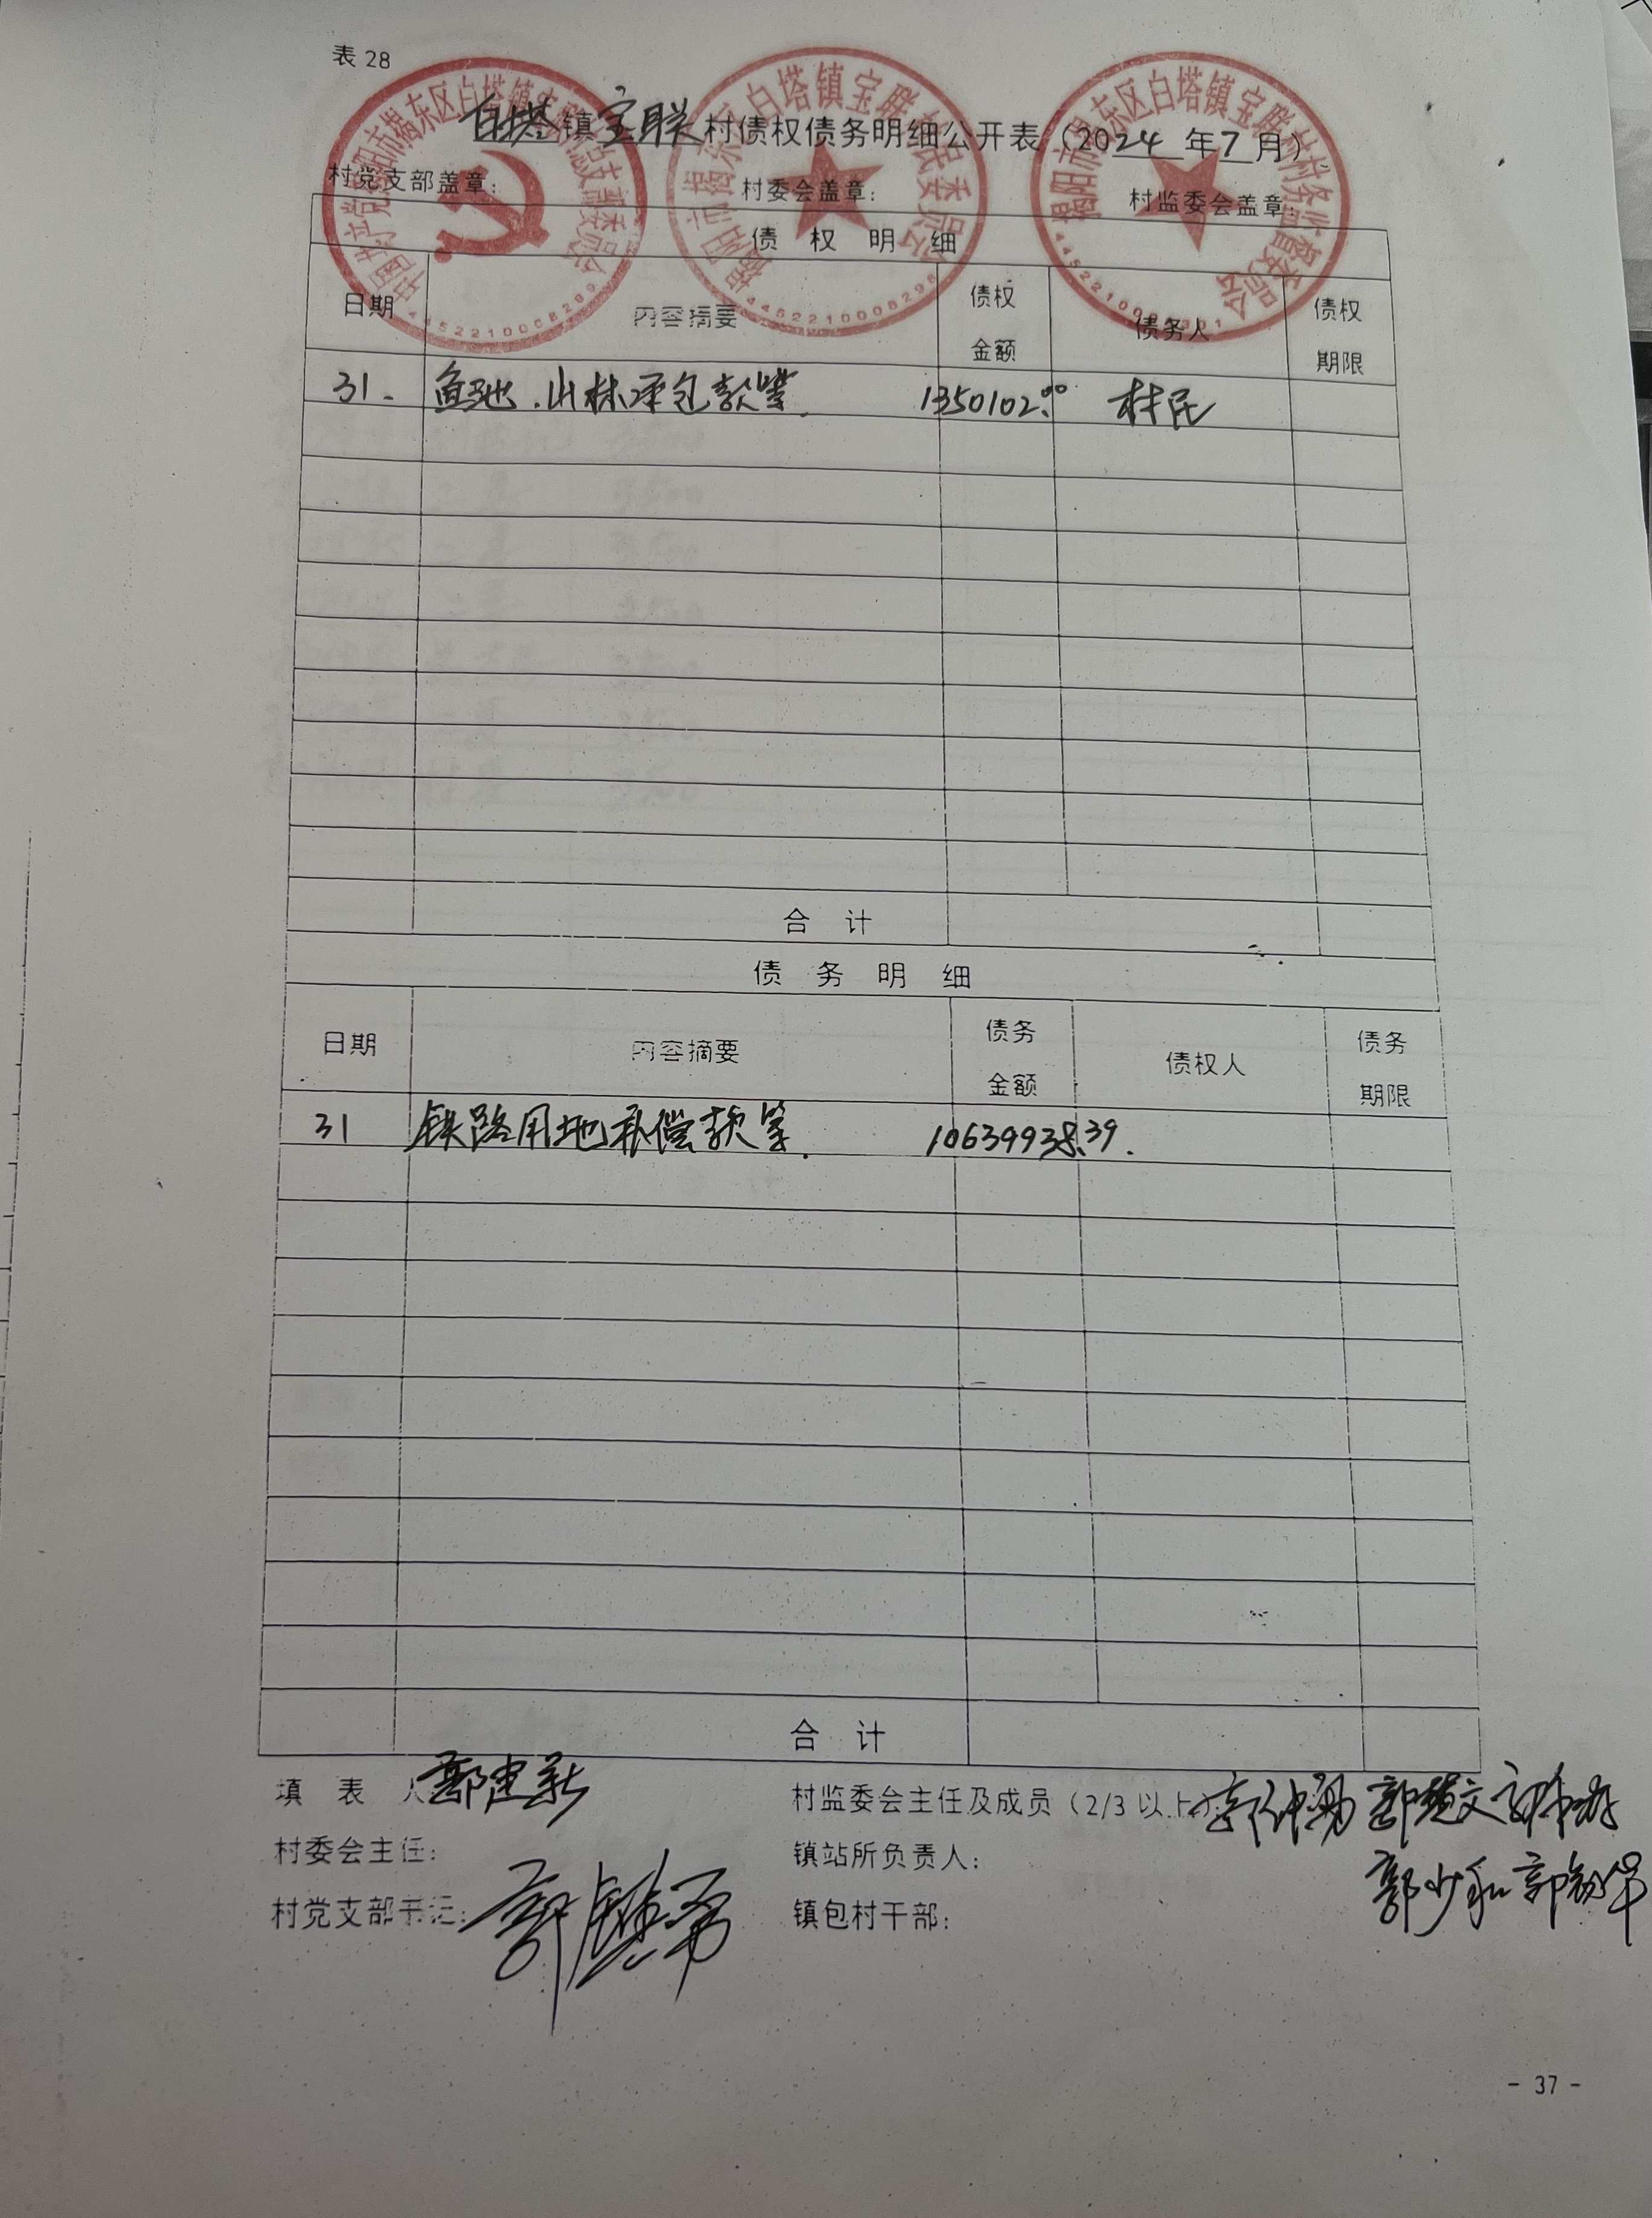 表 28
白塔镇宝联村债权债务明细公开表（2024年7月）
村党支部盖章： 村委会盖章： 村监委会盖章：
中国共产党揭阳市揭东区白塔镇宝联村总支部委员会
揭阳市揭东区白塔镇宝联村民委员会
揭阳市揭东区白塔镇宝联村村务监督委员会
债 权 明 细
日期 内容摘要 债权金额 债务人 债权期限
31. 鱼池.山林承包款等. 1350102.00 村民
合 计
债 务 明 细
日期 内容摘要 债务金额 债权人 债务期限
31 铁路用地补偿款等. 10639938.39.
合 计
填 表 人 郭建新 村监委会主任及成员（2/3 以上）：
村委会主任： 镇站所负责人： 郭少和
村党支部书记： 镇包村干部：
- 37 -